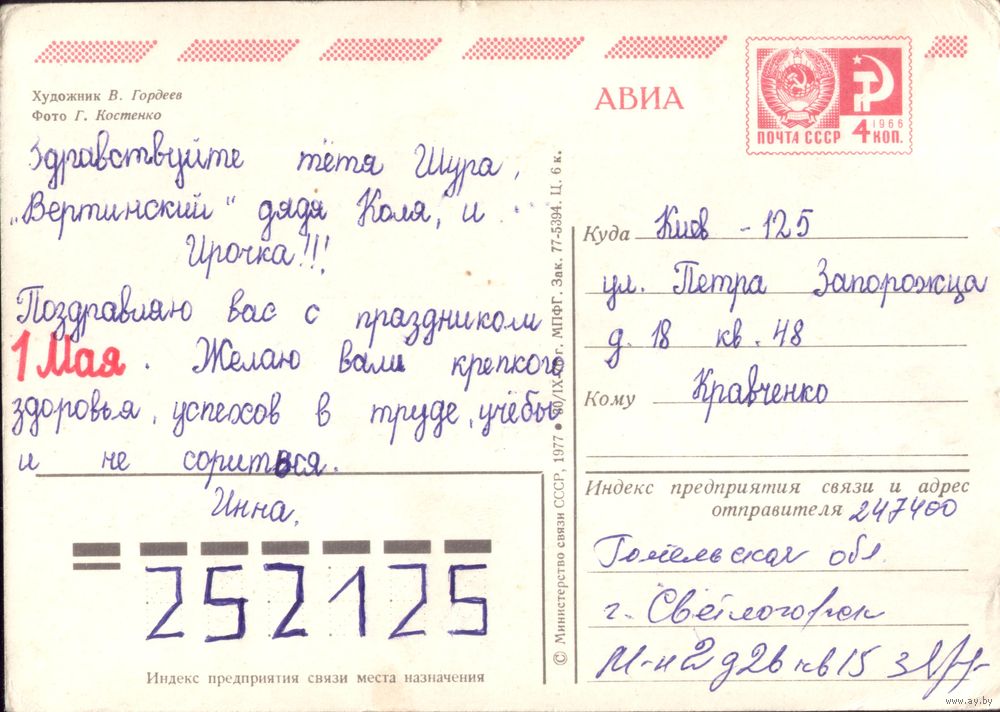 АВИА
1966
ПОЧТА СССР 4 КОП.
Художник В. Гордеев
Фото Г. Костенко
Здравствуйте тётя Шура,
„Вертинский“ дядя Коля, и
Ирочка!!!
Поздравляю вас с праздником
1 Мая. Желаю вам крепкого
здоровья, успехов в труде, учёбы
и не сориться.
Инна.
252125
Индекс предприятия связи места назначения
© Министерство связи СССР, 1977 ● 30/IX г. МПФГ. Зак. 77-5394. Ц. 6 к.
Куда Киев - 125
ул. Петра Запорожца
д. 18 кв. 48
Кому Кравченко
Индекс предприятия связи и адрес
отправителя 247400
Гомельская обл.
г. Светлогорск
М-н 2 д 2в кв 15
www.ay.by